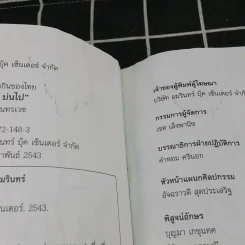 บุ๊ค เซ็นเตอร์ จำกัด
กินของไทย
บ่นไป"
นทรเวช
72-148-3
ค เซ็นเตอร์ จำกัด
าพันธ์ 2543
มรินทร์
นเตอร์, 2543.
เจ้าของผู้พิมพ์ผู้โฆษณา
บริษัท อมรินทร์ บุ๊ค เซ็นเตอร์ จำกัด
กรรมการผู้จัดการ
เชต เล็งพานิช
บรรณาธิการฝ่ายปฏิบัติการ
คำหอม ศรีนอก
หัวหน้าแผนกศิลปกรรม
อัจฉราวดี สุดประเสริฐ
พิสูจน์อักษร
บุญมา เกขุนทศ